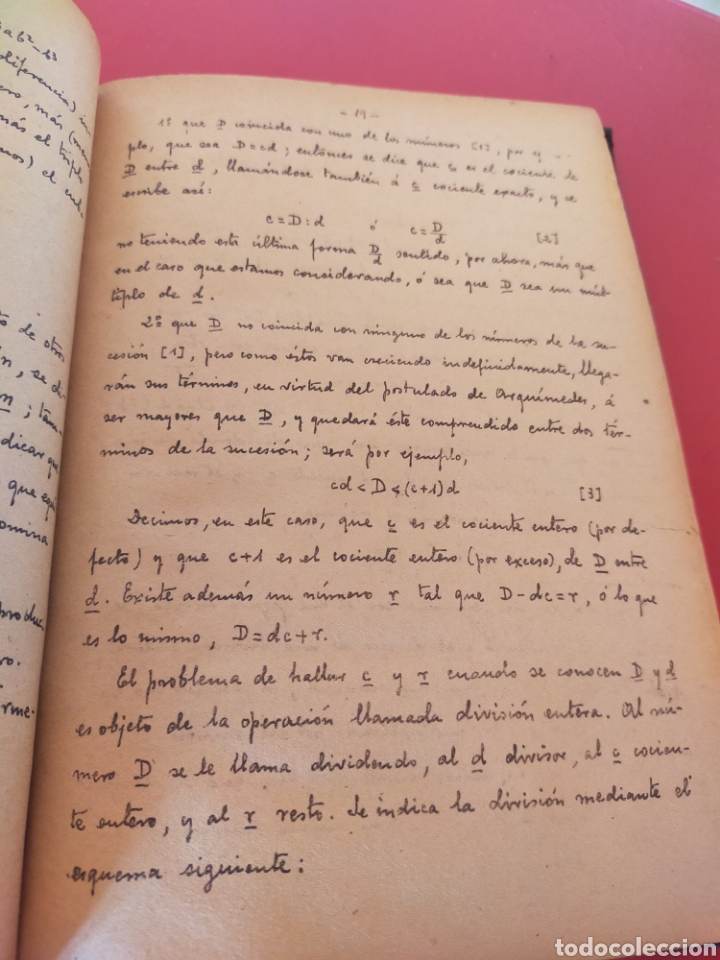 ab²-b³
diferencia) in
ero, más (me
más el triplo
nos) el cu
to de otros
n, se di
n; tam
dicar que
que equi
omina
produc
ro.
rme-
- 19 -
1º que D coincida con uno de los números [1], por ej
plo, que sea D=cd; entonces se dice que c es el cociente de
D entre d, llamándose también á c cociente exacto, y se
escribe así:
c = D : d ó c = D/d [2]
no teniendo esta última forma D/d sentido, por ahora, más que
en el caso que estamos considerando, ó sea que D sea un múl-
tiplo de d.
2º que D no coincida con ninguno de los números de la su-
cesión [1], pero como éstos van creciendo indefinidamente, llega-
rán sus términos, en virtud del postulado de Arquímedes, á
ser mayores que D, y quedará éste comprendido entre dos tér-
minos de la sucesión; será por ejemplo,
cd < D < (c+1)d [3]
Decimos, en este caso, que c es el cociente entero (por de-
fecto) y que c+1 es el cociente entero (por exceso), de D entre
d. Existe además un número r tal que D-dc=r, ó lo que
es lo mismo, D=dc+r.
El problema de hallar c y r cuando se conocen D y d
es objeto de la operación llamada división entera. Al nú-
mero D se le llama dividendo, al d divisor, al c cocien-
te entero, y al r resto. Se indica la división mediante el
esquema siguiente:
todocoleccion